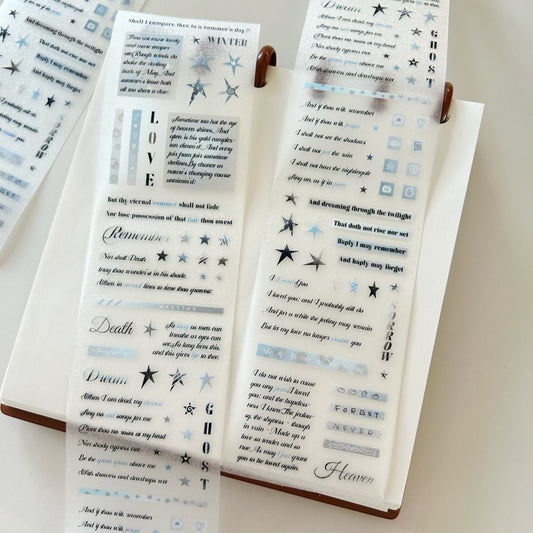 shall I compare thee to a summer's day?
Thou art more lovely
WINTER
and more temper-
ate: Rough winds do
shake the darling
buds of May, And
summer's lease hath
all too short a date:
LOVE
Sometime too hot the eye
of heaven shines, And
often is his gold complex-
ion dimm'd; And every
fair from fair sometime
declines, By chance or
nature's changing course
untrimm'd:
But thy eternal summer shall not fade
Nor lose possession of that fair thou owest
Remember
Nor shall Death
brag thou wander'st in his shade,
When in eternal lines to time thou growest:
Death
So long as men can
breathe or eyes can
see, So long lives this,
and this gives life to thee.
Dream
When I am dead, my dearest
Sing no sad songs for me
Plant thou no roses at my head
Nor shady cypress tree
Be the green grass above me
With showers and dewdrops wet
GHOST
And if thou wilt, remember
And if thou wilt, forget
Dream
When I am dead, my dearest
Sing no sad songs for me
Plant thou no roses at my head
Nor shady cypress tree
Be the green grass above me
With showers and dewdrops wet
GHOST
And if thou wilt, remember
And if thou wilt, forget
I shall not see the shadows
I shall not feel the rain
I shall not hear the nightingale
Sing on, as if in pain
And dreaming through the twilight
That doth not rise nor set
Haply I may remember
And haply may forget
I Loved You
I loved you; and I probably still do
And for a while the feeling may remain
But let my love no longer trouble you
SORROW
I do not wish to cause
you any pain. I loved
you; and the hopeless-
ness I knew. The jealou-
sy, the shyness - though
in vain - Made up a
love so tender and so
true. As may God grant
you to be loved again.
FORGET
NEVER
Heaven
And dreaming through the twilight
That doth not rise nor set
Haply I may remember
And haply may forget
probably still do
SORROW